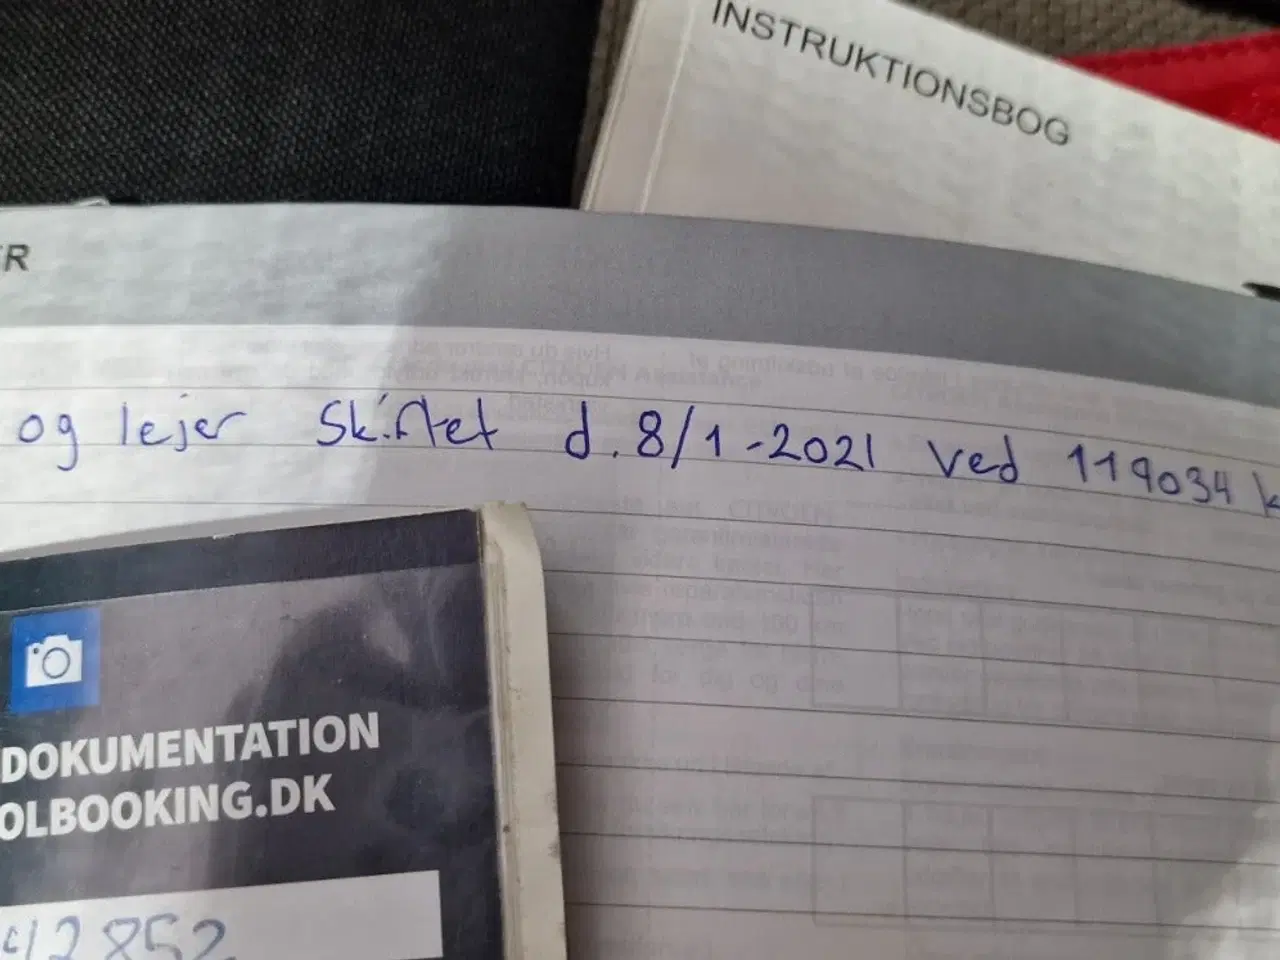 INSTRUKTIONSBOG
ER
og lejer Skiftet d. 8/1-2021 ved 119034 k
DOKUMENTATION
OLBOOKING.DK
42852